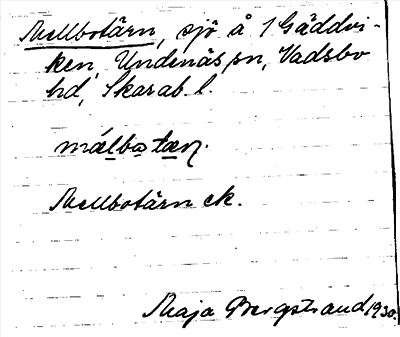 Mellbotärn, sjö å 1 Gäddvi-
ken, Undenäs sn, Vadsbo
hd, Skarab. l.
mælbotæṇ.
Mellbotärn ek.
Maja Bergstrand 1930.